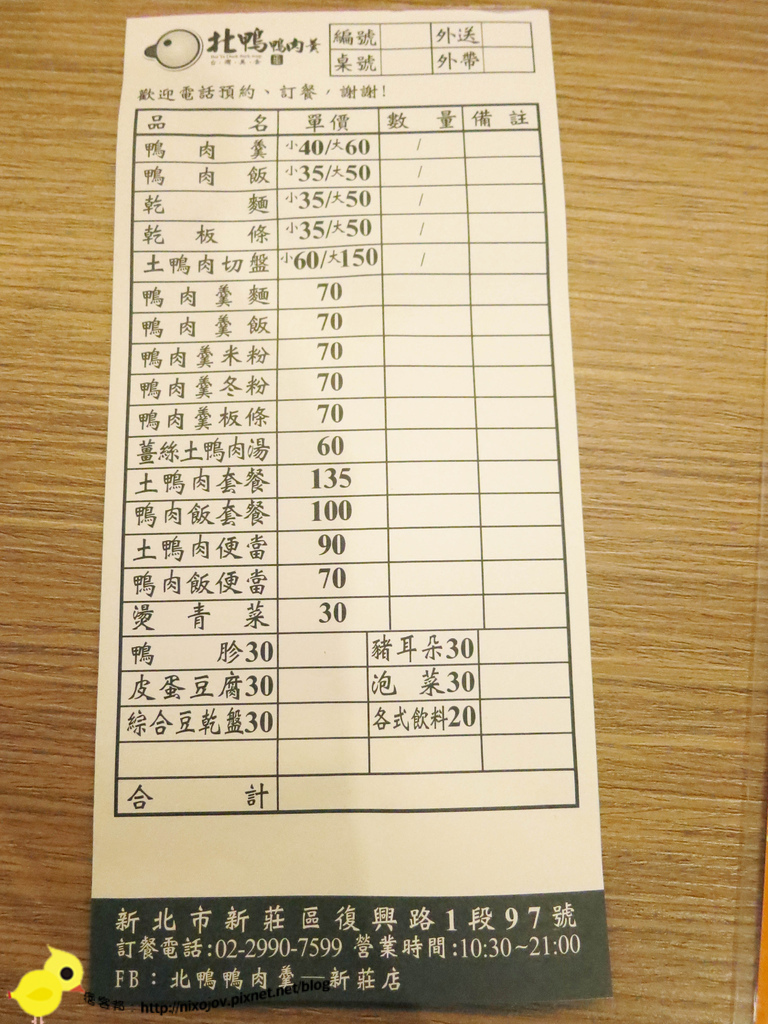 北鴨鴨肉羹
編號 外送
桌號 外帶
歡迎電話預約、訂餐，謝謝!
品名 單價 數量 備註
鴨肉羹 小40/大60 /
鴨肉飯 小35/大50 /
乾麵 小35/大50 /
乾板條 小35/大50 /
土鴨肉切盤 小60/大150 /
鴨肉羹麵 70
鴨肉羹飯 70
鴨肉羹米粉 70
鴨肉羹冬粉 70
鴨肉羹板條 70
薑絲土鴨肉湯 60
土鴨肉套餐 135
鴨肉飯套餐 100
土鴨肉便當 90
鴨肉飯便當 70
燙青菜 30
鴨胗30 豬耳朵30
皮蛋豆腐30 泡菜30
綜合豆乾盤30 各式飲料20
合計
新北市新莊區復興路1段97號
訂餐電話:02-2990-7599 營業時間:10:30~21:00
FB：北鴨鴨肉羹—新莊店
痞客邦：http://nixojov.pixnet.net/blog